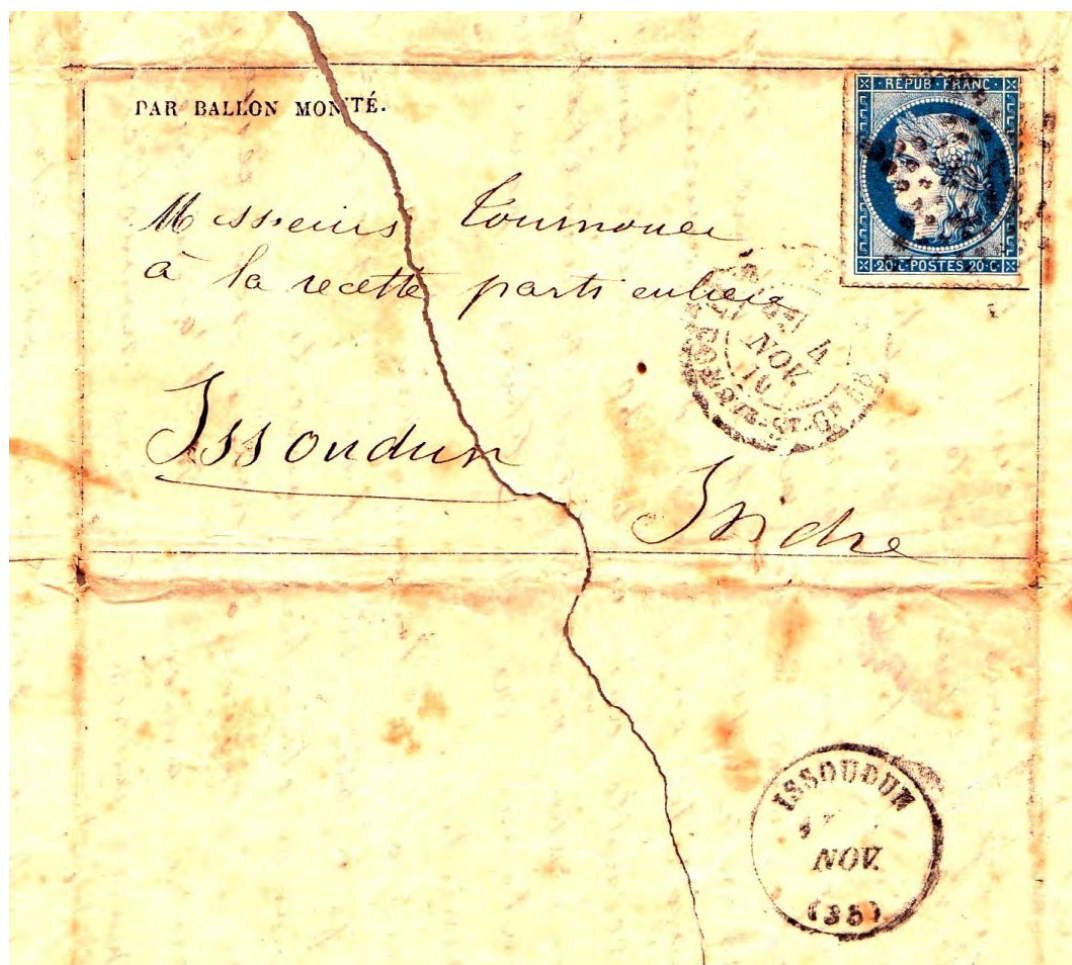 PAR BALLON MONTÉ.
REPUB·FRANC·
20·C·POSTES 20·C·
Messieurs Tournouer
à la recette particulière
4
NOV.
Issoudun
Indre
ISSOUDUN
NOV.
(35)